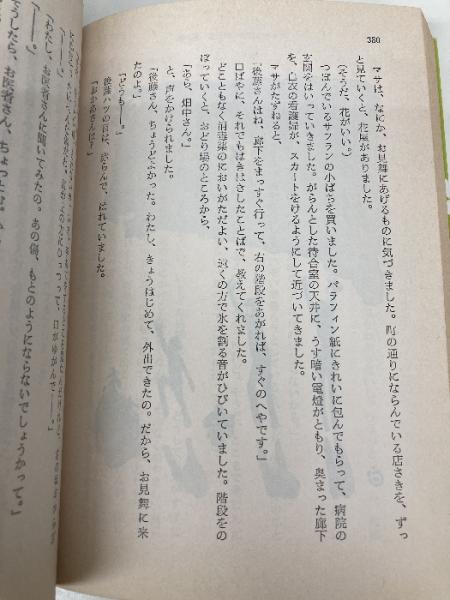 380
マサは、なにか、お見舞にあげるものに気づきました。町の通りにならんでいる店さきを、ずっ
と見ていくと、花屋がありました。
(そうだ、花がいい。)
つぼんでいるサフランの小ばちを買いました。パラフィン紙にきれいに包んでもらって、病院の
玄関をはいっていきました。がらんとした待合室の天井に、うす暗い電燈がともり、奥まった廊下
を、白衣の看護婦が、スカートをけるようにして近づいてきました。
マサがたずねると、
「後藤さんはね、廊下をまっすぐ行って、右の階段をあがれば、すぐのへやです。」
口ばやに、それでもはきはきしたことばで、教えてくれました。
どこともなく消毒薬のにおいがただよい、遠くの方で氷を割る音がひびいていました。階段をの
ぼっていくと、おどり場のところから、
「あら、畑中さん。」
と、声をかけられました。
「後藤さん、ちょうどよかった。わたし、きょうはじめて、外出できたの。だから、お見舞に来
たのよ。」
「どうも――。」
後藤ハツの目は、赤らんで、はれていました。
「おかあさんは?」
「――。」
「わたし、お医者さんに聞いてみたの。あの傷、もとのようにならないでしょうかって。」
「――。」
そうしたら、お医者さん、ちょっと